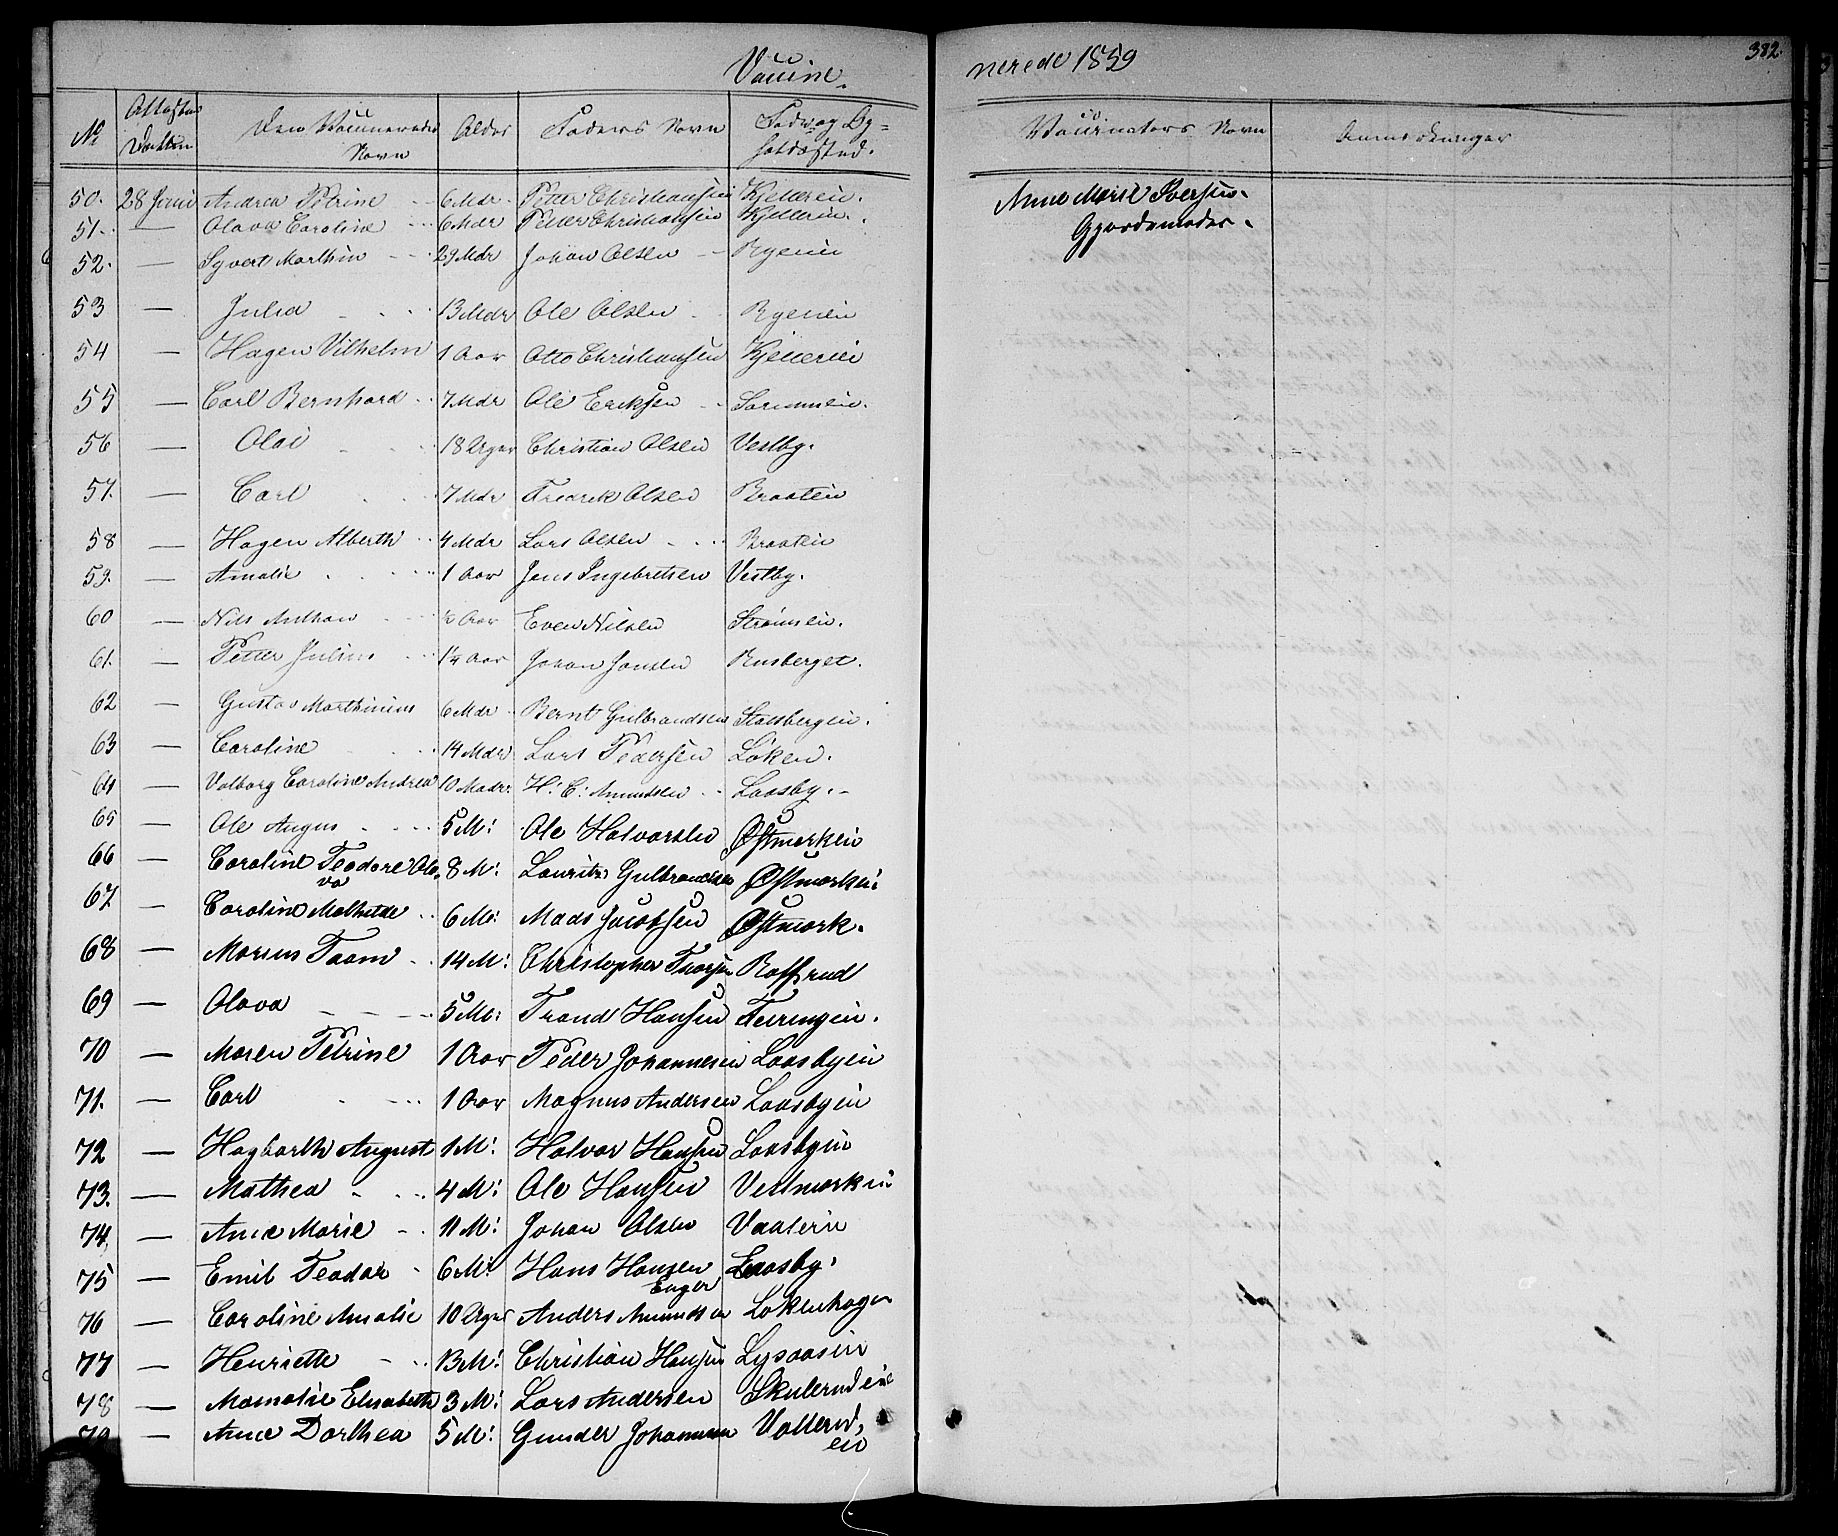 Vaccine-
nerede 1859
382
No
Attestens Datum
Den Vaccineredes Navn
Alder
Faders Navn
Føde og Op-holdssted.
Vaccinators Navn
Anmærkninger
50. 28 Juni Andrea Petrine 6 Mdr Petter Christiansen Kjelleren. Anne Marie Iversen-
51. — Olava Caroline 6 Mdr Petter Christiansen Kjelleren. Gjordemoder.
52. — Syvert Marthin 29 Mdr Johan Olsen Ryenen
53 — Julia 13 Mdr Ole Olsen Ryenen
54 — Hagen Vilhelm 1 Aar Otto Christiansen Kjelleren
55 — Carl Bernhard 7 Mdr Ole Eriksen
56 — Olai 18 Uger Christian Olsen Vestby.
57. — Carl 7 Mdr Fredrek Olsen Braaten
58 — Hagen Alberth 4 Mdr Lars Olsen Braaten
59. — Amalie 1 Aar Jens Ingebretsen Vestby.
60 — Nils Anthon ½ Aar Even Nilsen Strømsen.
61. — Petter Julius 1¼ Aar Johan Jansen Rusberget.
62 — Gustav Marthinius 6 Mdr Bernt Gulbrandsen Stalsbergen.
63 — Caroline 14 Mdr Lars Pedersen Løken.
64 — Valborg Caroline Andrea 10 Madr. H. C. Amundsen Laasby.
65 — Ole Augus 5 M: Ole Halvorsen Østmarken
66 — Caroline Teodore Ola-va 8 M: Lauritz Gulbrandsen Østmarken
67 — Caroline Mathilde 6 M: Mads Jacobsen Østmark.
68 — Marius Taam 14 M: Christopher Taarsen
69 — Olava 5 M: Trond Hansen Tæringen.
70 — Maren Petrine 1 Aar Peder Johannesen Laasbyen
71. — Carl 1 Aar Magnus Andersen Laasbyen
72 — Hagbarth August 1 M: Halvor Hansen Laasbyen
73. — Mathea 4 M: Ole Hansen Vestmarken
74, — Anne Marie 11 M: Johan Olsen Vaaleren
75 — Emil Teodor 6 M: Hans Hansen Enger Laasby.
76 — Caroline Amalie 10 Uger Anders Amundsen Løkenhagen
77 — Henriette 13 M: Christian Hansen Lysaasen
78 — Mamalie Elisabeth 3 M: Lars Andersen Skulerudeie
79 — Anne Dorthea 5 M: Gunder Johannesen Vallerud, eie